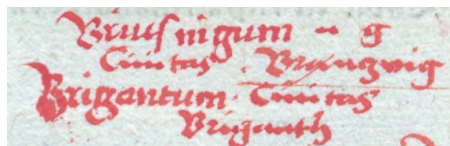 Bruſnigum - g
Ciuitas Brunzvig
Brigantum. Ciuitas
Briganth